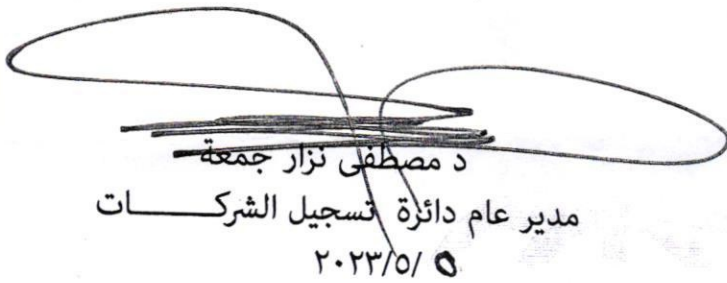 د مصطفى نزار جمعة
مدير عام دائرة تسجيل الشركـــــــات
٢٠٢٣/٥/ ٥